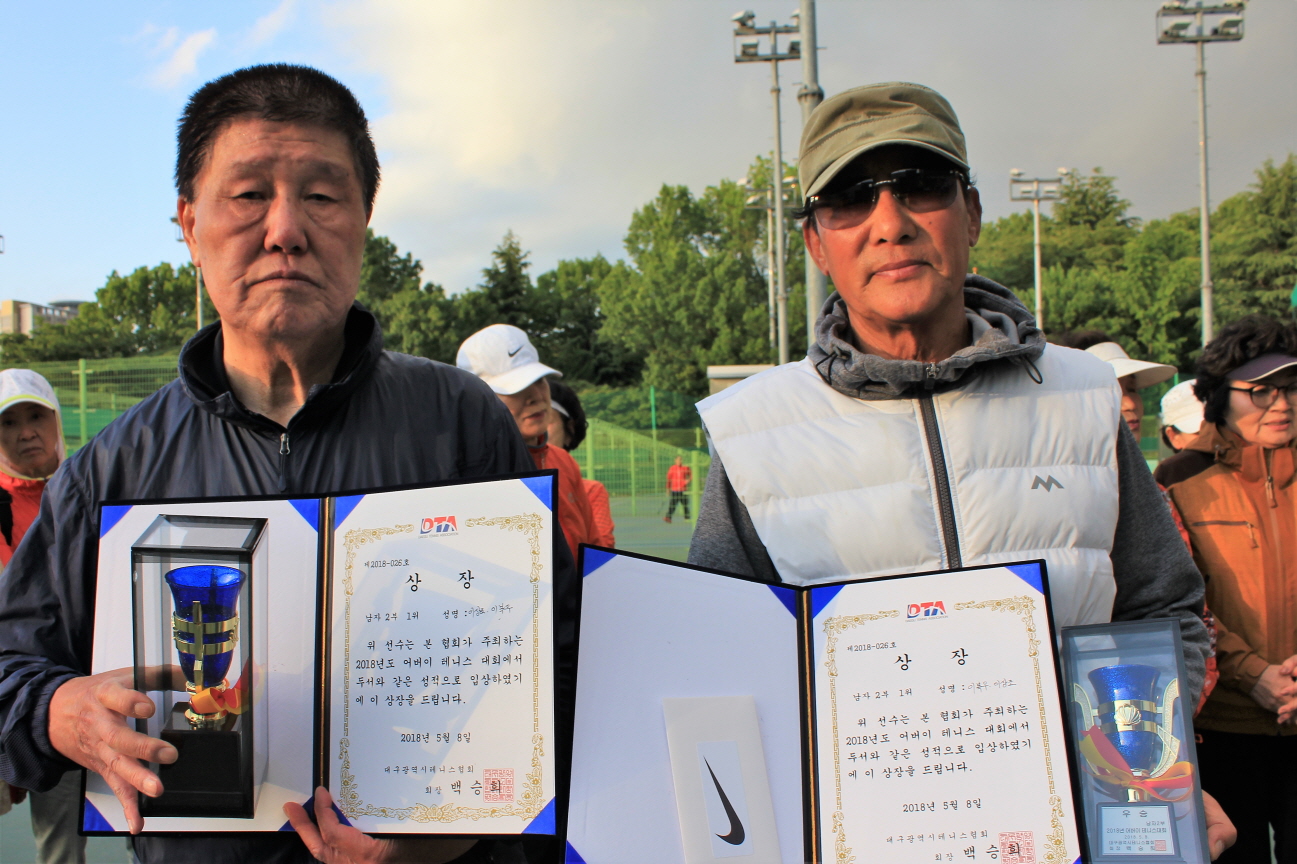 DTA
제2018-026호
상 장
남자 2부 1위 성명 :
위 선수는 본 협회가 주최하는
2018년도 어버이 테니스 대회에서
두서와 같은 성적으로 입상하였기
에 이 상장을 드립니다.
2018년 5월 8일
대구광역시테니스협회
회장 백 승 희
DTA
제2018-026호
상 장
남자 2부 1위 성명 :
위 선수는 본 협회가 주최하는
2018년도 어버이 테니스 대회에서
두서와 같은 성적으로 입상하였기
에 이 상장을 드립니다.
2018년 5월 8일
대구광역시테니스협회
회장 백 승 희
우 승
남자2부
2018년 어버이 테니스대회